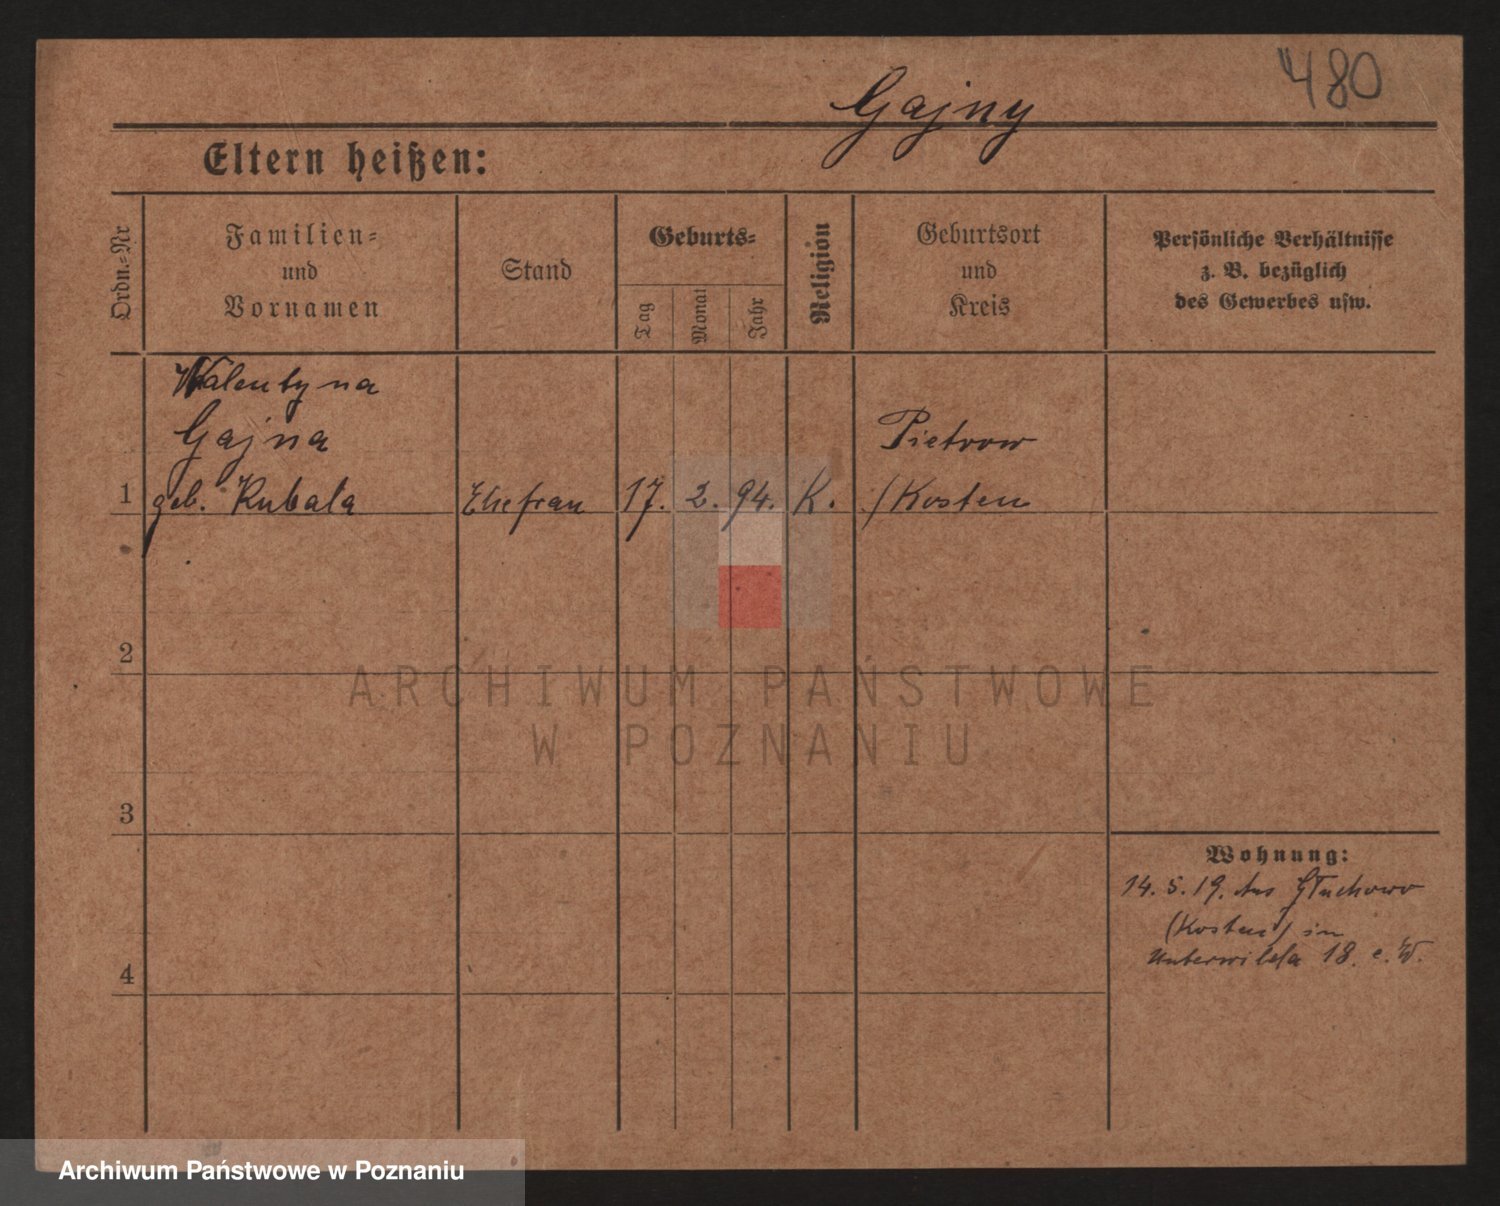 480
Gajny
Eltern heißen:
Ordn.=Nr
Familien=
und
Vornamen
Stand
Geburts=
Tag
Monat
Jahr
Religion
Geburtsort
und
Kreis
Persönliche Verhältnisse
z. B. bezüglich
des Gewerbes usw.
Walentyna
Gajna
1 geb. Kubala Ehefrau 17. 2. 94. K. Pietrow
/Kosten
2
ARCHIWUM PAŃSTWOWE
W POZNANIU
3
Wohnung:
14. 5. 19. aus Głuchowo
(Kosten) in
Unterwilda 18. e. W.
4
Archiwum Państwowe w Poznaniu